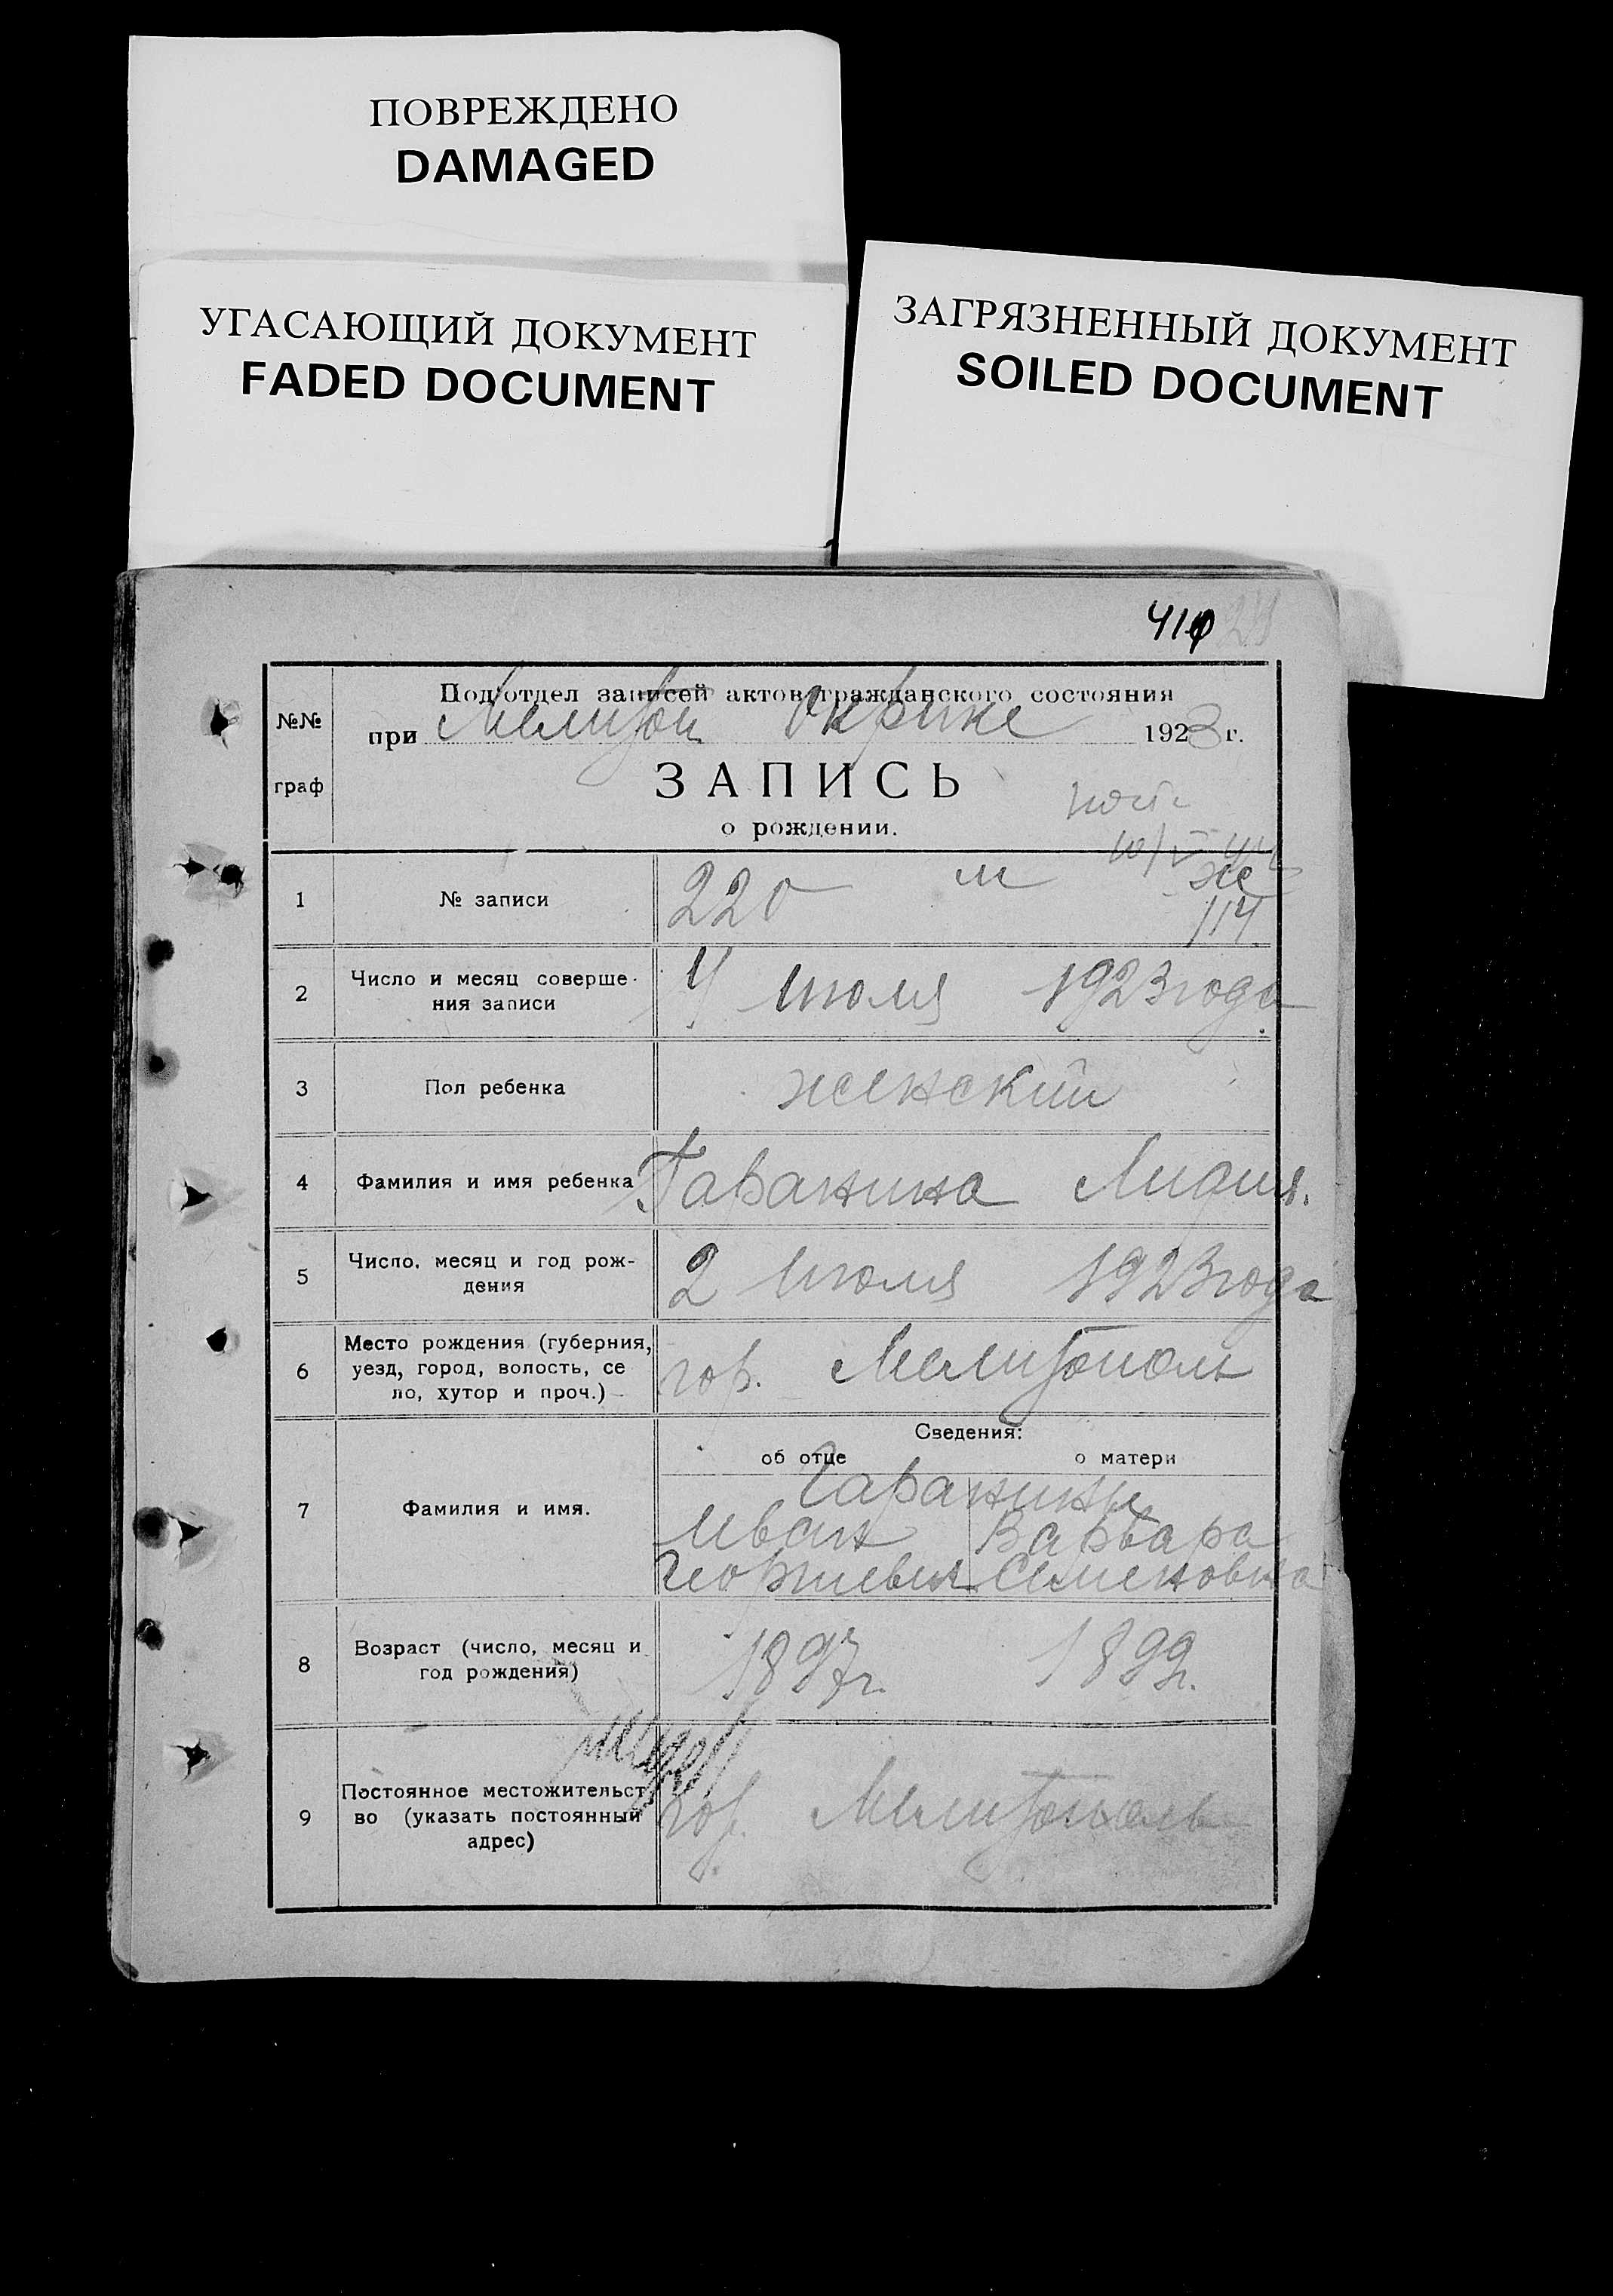 ПОВРЕЖДЕНО
DAMAGED
УГАСАЮЩИЙ ДОКУМЕНТ
FADED DOCUMENT
ЗАГРЯЗНЕННЫЙ ДОКУМЕНТ
SOILED DOCUMENT
410
№№
граф
Подотдел записей актов гражданского состояния
при Мелитоп. Окрике 1923 г.
ЗАПИСЬ
о рождении.
1 № записи 220 м ж 114
2 Число и месяц соверше-
ния записи 4 Июля 1923 года
3 Пол ребенка женский
4 Фамилия и имя ребенка Гаранина Лидия.
5 Число, месяц и год рож-
дения 2 Июля 1923 года
6 Место рождения (губерния,
уезд, город, волость, се
ло, хутор и проч.) гор. Мелитополь
Сведения:
об отце о матери
7 Фамилия и имя. Гаранины
Иван Варвара
Георгиевич Семеновна
8 Возраст (число, месяц и
год рождения) 1897 г. 1899 г.
9 Постоянное местожительст
во (указать постоянный
адрес) гор. Мелитополь